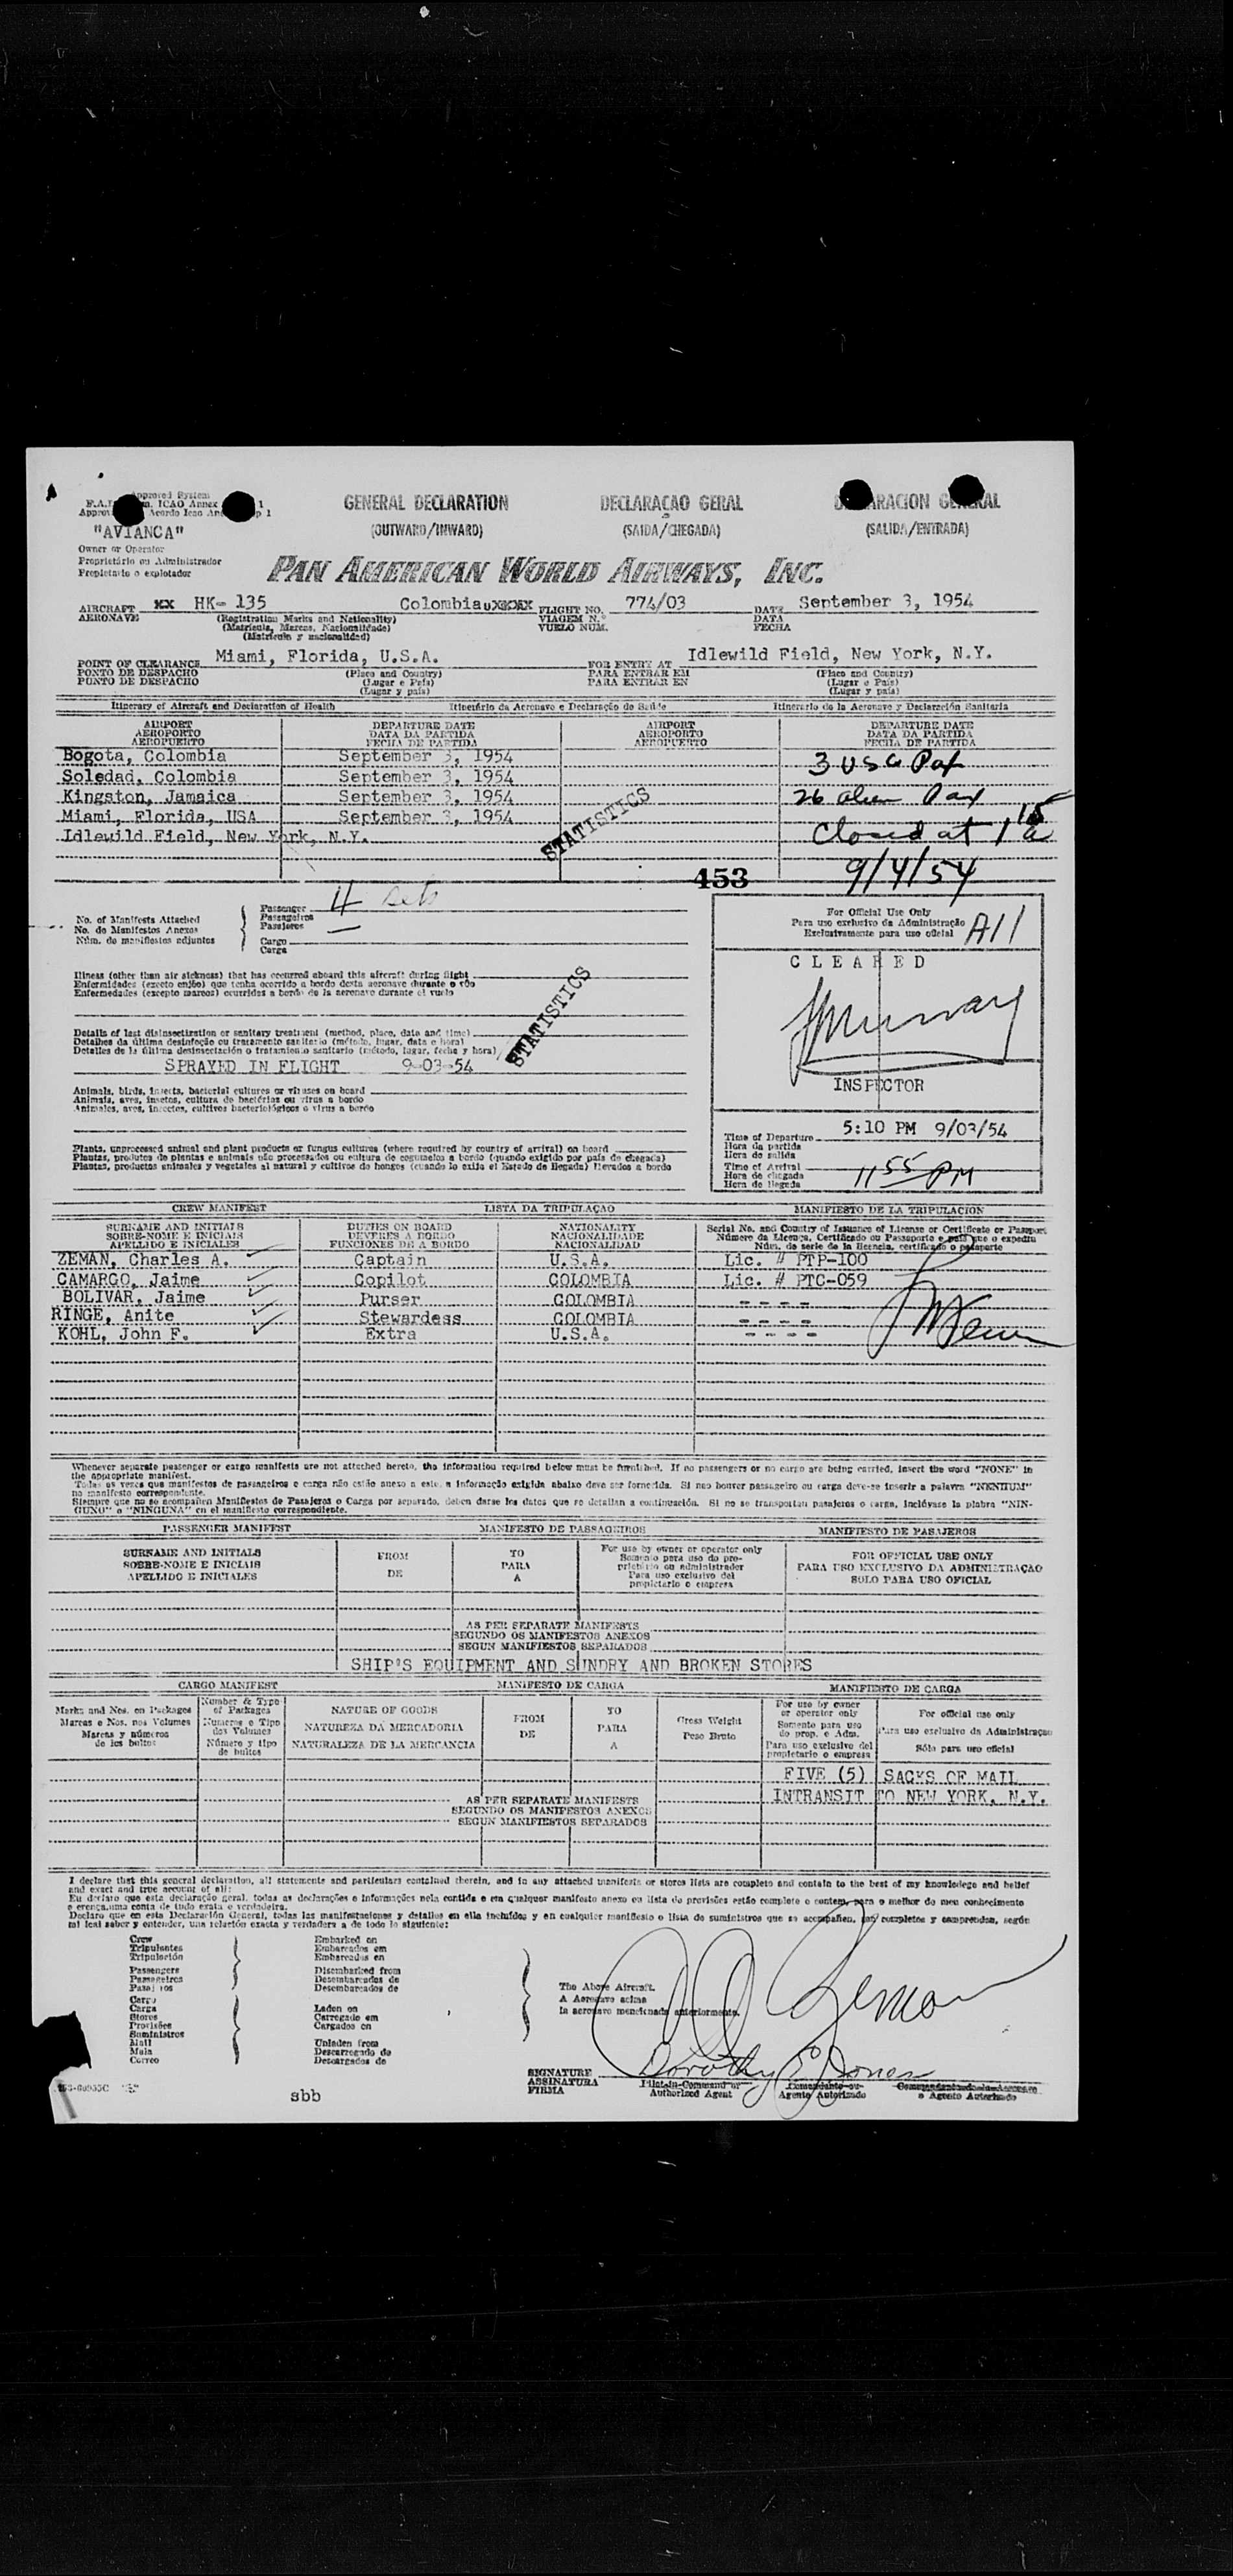 Approved System
"AVIANCA"
Owner or Operator
Proprietário ou Administrador
Propietario o explotador
GENERAL DECLARATION
(OUTWARD/INWARD)
DECLARAÇAO GERAL
(SAIDA/CHEGADA)
(SALIDA/ENTRADA)
PAN AMERICAN WORLD AIRWAYS, INC.
AIRCRAFT HK- 135 Colombia FLIGHT NO. 774/03 DATE September 3, 1954
AERONAVE (Registration Marks and Nationality) VIAGEM N.º DATA
(Matrícula, Marcas, Nacionalidade) VUELO NUM. FECHA
(Matrícula y nacionalidad)
POINT OF CLEARANCE Miami, Florida, U.S.A. FOR ENTRY AT Idlewild Field, New York, N.Y.
PONTO DE DESPACHO (Place and Country) PARA ENTRAR EM (Place and Country)
PUNTO DE DESPACHO (Lugar e País) PARA ENTRAR EN (Lugar e País)
(Lugar y país) (Lugar y país)
Itinerary of Aircraft and Declaration of Health Itinerário da Aeronave e Declaração de Saúde Itinerario de la Aeronave y Declaración Sanitaria
AIRPORT DEPARTURE DATE AIRPORT DEPARTURE DATE
AEROPORTO DATA DA PARTIDA AEROPORTO DATA DA PARTIDA
AEROPUERTO FECHA DE PARTIDA AEROPUERTO FECHA DE PARTIDA
Bogota, Colombia September 3, 1954 3 USC Pax
Soledad, Colombia September 3, 1954
Kingston, Jamaica September 3, 1954 26 alien Pax
Miami, Florida, USA September 3, 1954
Idlewild Field, New York, N.Y. Closed at 1 15 a
STATISTICS
453 9/4/54
No. of Manifests Attached
No. de Manifestos Anexos
Núm. de manifiestos adjuntos
Passenger 4 sets
Passageiros
Pasajeros
Cargo
Carga
For Official Use Only
Para uso exclusivo da Administração
Exclusivamente para uso oficial
All
CLEARED
Murray
INSPECTOR
Illness (other than air sickness) that has occurred aboard this aircraft during flight
Enfermidades (exceto enjôo) que tenha ocorrido a bordo desta aeronave durante o vôo
Enfermedades (excepto mareos) ocurridas a bordo de la aeronave durante el vuelo
STATISTICS
Details of last disinsectization or sanitary treatment (method, place, date and time)
Detalhes da última desinfeção ou tratamento sanitario (método, lugar, data e hora)
Detalles de la última desinsectación o tratamiento sanitario (método, lugar, fecha y hora)
SPRAYED IN FLIGHT 9-03-54
Animals, birds, insects, bacterial cultures or viruses on board
Animais, aves, insetos, cultura de bactérias ou virus a bordo
Animales, aves, insectos, cultivos bacteriológicos o virus a bordo
Plants, unprocessed animal and plant products or fungus cultures (where required by country of arrival) on board
Plantas, produtos de plantas e animais não processados ou cultura de cogumelos a bordo (quando exigido por país de chegada)
Plantas, productos animales y vegetales al natural y cultivos de hongos (cuando lo exija el Estado de llegada) llevados a bordo
Time of Departure 5:10 PM 9/03/54
Hora da partida
Hora de salida
Time of Arrival 11 55 PM
Hora de chegada
Hora de llegada
CREW MANIFEST LISTA DA TRIPULAÇAO MANIFIESTO DE LA TRIPULACION
SURNAME AND INITIALS DUTIES ON BOARD NATIONALITY Serial No. and Country of Issuance of License or Certificate or Passport
SOBRE-NOME E INICIAIS DEVERES A BORDO NACIONALIDADE Número da Licença, Certificado ou Passaporte e país que o expediu
APELLIDO E INICIALES FUNCIONES DE A BORDO NACIONALIDAD Núm. de serie de la licencia, certificado o pasaporte
ZEMAN, Charles A. Captain U.S.A. Lic. # PTP-100
CAMARGO, Jaime Copilot COLOMBIA Lic. # PTC-059
BOLIVAR, Jaime Purser COLOMBIA - - - -
RINGE, Anite Stewardess COLOMBIA - - - -
KOHL, John F. Extra U.S.A. - - - -
Whenever separate passenger or cargo manifests are not attached hereto, the information required below must be furnished. If no passengers or no cargo are being carried, insert the word "NONE" in
the appropriate manifest.
Todas as vezes que manifestos de passageiros e carga não estão anexo a este, a informação exigida abaixo deve ser fornecida. Si nao houver passageiro ou carga deve-se inserir a palavra "NENHUM"
no manifesto correspondente.
Siempre que no se acompañen Manifiestos de Pasajeros o Carga por separado, deben darse los datos que se detallan a continuación. Si no se transportan pasajeros o carga, inclúyase la plabra "NIN-
GUNO" o "NINGUNA" en el manifiesto correspondiente.
PASSENGER MANIFEST MANIFESTO DE PASSAGEIROS MANIFIESTO DE PASAJEROS
SURNAME AND INITIALS FROM TO For use by owner or operator only FOR OFFICIAL USE ONLY
SOBRE-NOME E INICIAIS DE PARA Somente para uso do proprietário ou administrador PARA USO EXCLUSIVO DA ADMINISTRAÇAO
APELLIDO E INICIALES A Para uso exclusivo del propietario o empresa SOLO PARA USO OFICIAL
AS PER SEPARATE MANIFESTS
SEGUNDO OS MANIFESTOS ANEXOS
SEGUN MANIFIESTOS SEPARADOS
SHIP'S EQUIPMENT AND SUNDRY AND BROKEN STORES
CARGO MANIFEST MANIFESTO DE CARGA MANIFIESTO DE CARGA
Marks and Nos. on Packages Number & Type of Packages NATURE OF GOODS FROM TO Gross Weight For use by owner or operator only For official use only
Marcas e Nos. nos Volumes Numeros e Tipo dos Volumes NATUREZA DA MERCADORIA DE PARA Peso Bruto Somente para uso do prop. e Adm. Para uso exclusivo da Administraçao
Marcas y números de los bultos Número y tipo de bultos NATURALEZA DE LA MERCANCIA A Para uso exclusivo del propietario o empresa Sólo para uso oficial
FIVE (5) SACKS OF MAIL
INTRANSIT TO NEW YORK, N.Y.
AS PER SEPARATE MANIFESTS
SEGUNDO OS MANIFESTOS ANEXOS
SEGUN MANIFIESTOS SEPARADOS
I declare that this general declaration, all statements and particulars contained therein, and in any attached manifests or stores lists are complete and contain to the best of my knowledege and belief
and exact and true account of all:
Eu declaro que esta declaração geral, todas as declarações e informações nela contida e em qualquer manifesto anexo ou lista de provisões estão completo e contem, para o melhor do meu conhecimento
e crença, uma conta de tudo exata e verdadeira.
Declaro que en esta Declaración General, todas las manifestaciones y detalles en ella incluídos y en cualquier manifiesto o lista de suministros que se acompañen, son completos y comprenden, según
mi leal saber y entender, una relación exacta y verdadera a de todo lo siguiente:
Crew Embarked on
Tripulantes Embarcados em
Tripulación Embarcados en
Passengers Disembarked from
Passageiros Desembarcados de
Desembarcados de
Cargo
Carga Laden on
Stores Carregado em
Provisões Cargados en
Suministros
Mail Unladen from
Mala Descarregado de
Correo Descargados de
The Above Aircraft.
A Aeronave acima
la aeronave mencionada anteriormente.
Zeman
Dorothy E. Jones
SIGNATURE
ASSINATURA
FIRMA
Pilot-in-Command or
Authorized Agent
Comandante ou
Agente Autorizado
o Agente Autorizado
sbb